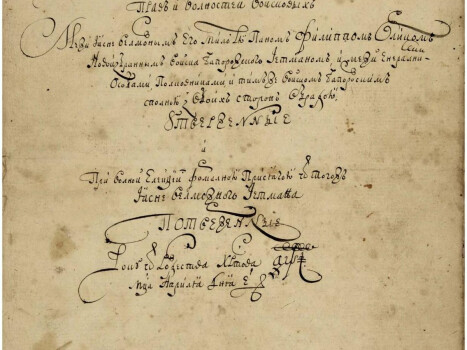 Правъ и волностей войсковыхъ
Межи Ясне велможнымъ Его Милостю Паномъ Филиппомъ Орликомъ
Новоизбраннымъ войска Запорожского Гетманомъ, и межи Енералними
Особами, Полковниками и тимъ же войскомъ Запорожскимъ
сполною з обойхъ сторонъ обрадою
Утверженніе
и
При волной Елекціи Формалною Присягою ѿ того жъ
Ясне велможного Гетмана
Потверженніе
Року ѿ Рождества Христова
Мця Априля дня е҃